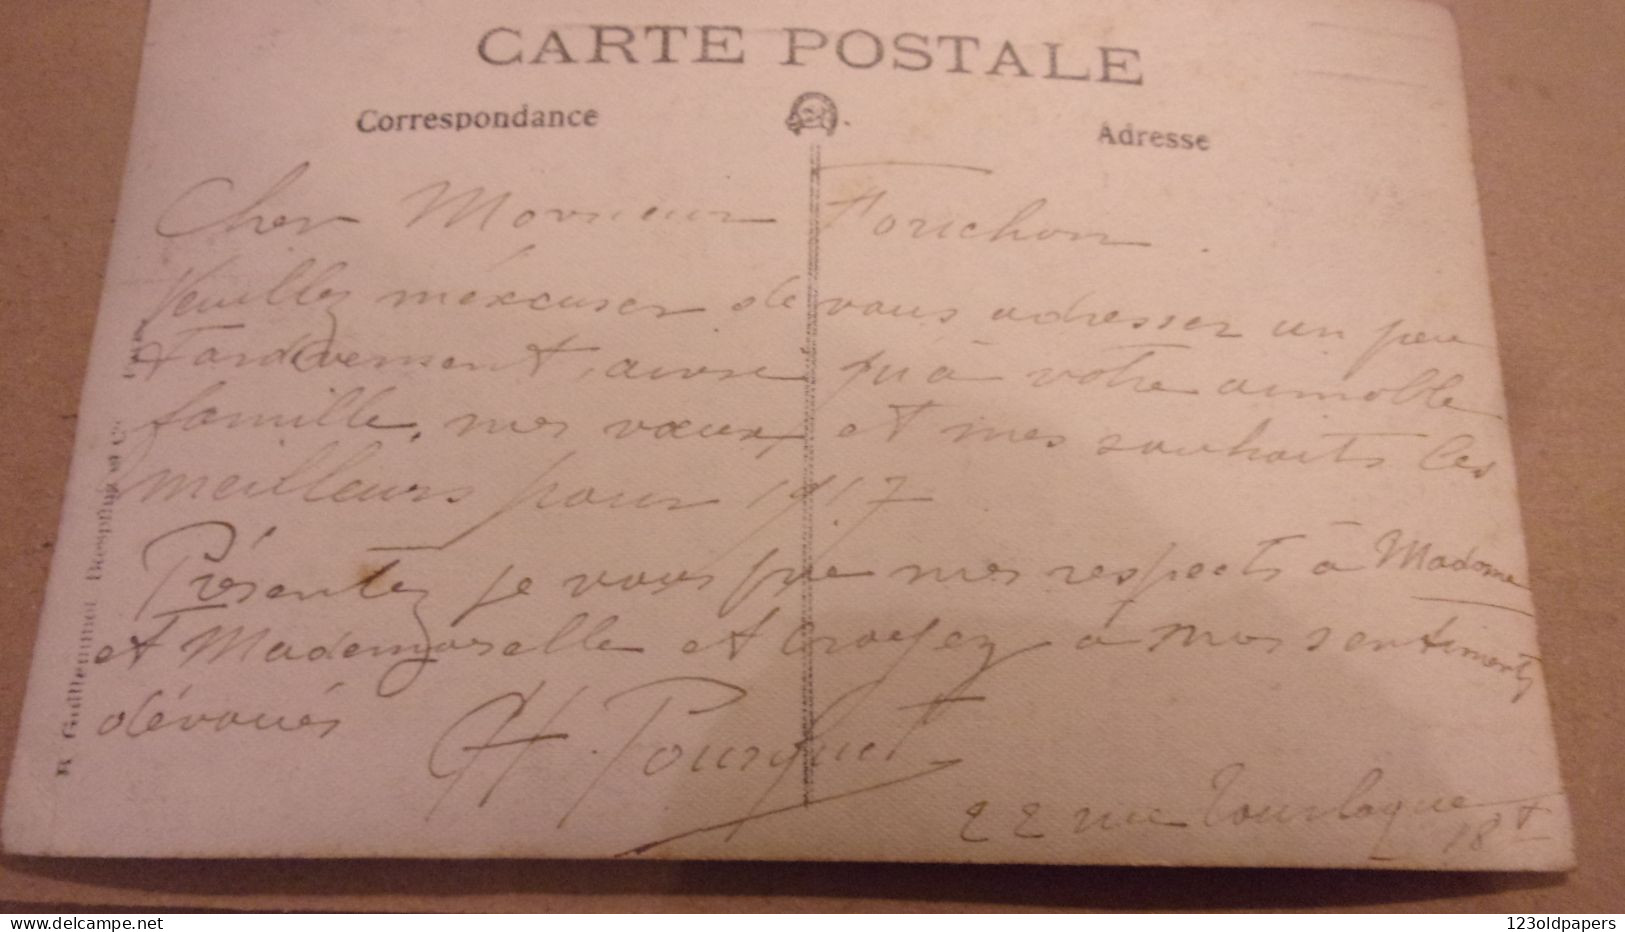 CARTE POSTALE
Correspondance
Adresse
Cher Monsieur Fouchon.
Veuillez m'éxcuser de vous adresser un peu
Tardivement, ainsi qu'à votre aimable
famille, mes vœux, et mes souhaits les
meilleurs pour 1917
Présentez je vous prie mes respects à Madame
et Mademoiselle et croyez à mes sentiments
dévoués
H. Pourquet
22 rue Tourlaque
18
R. Guilleminot Bœspflug et Cie Paris
123oldpapers